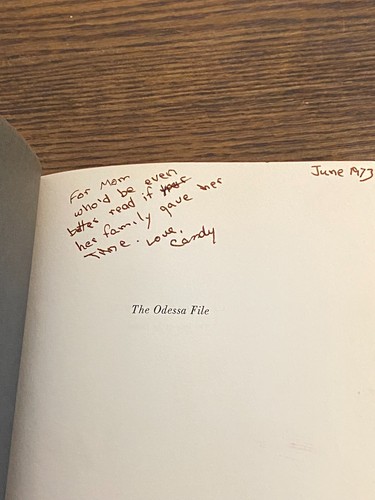 June 1973
For Mom
who'd be even
better read if
her family gave her
time. Love,
Candy
The Odessa File